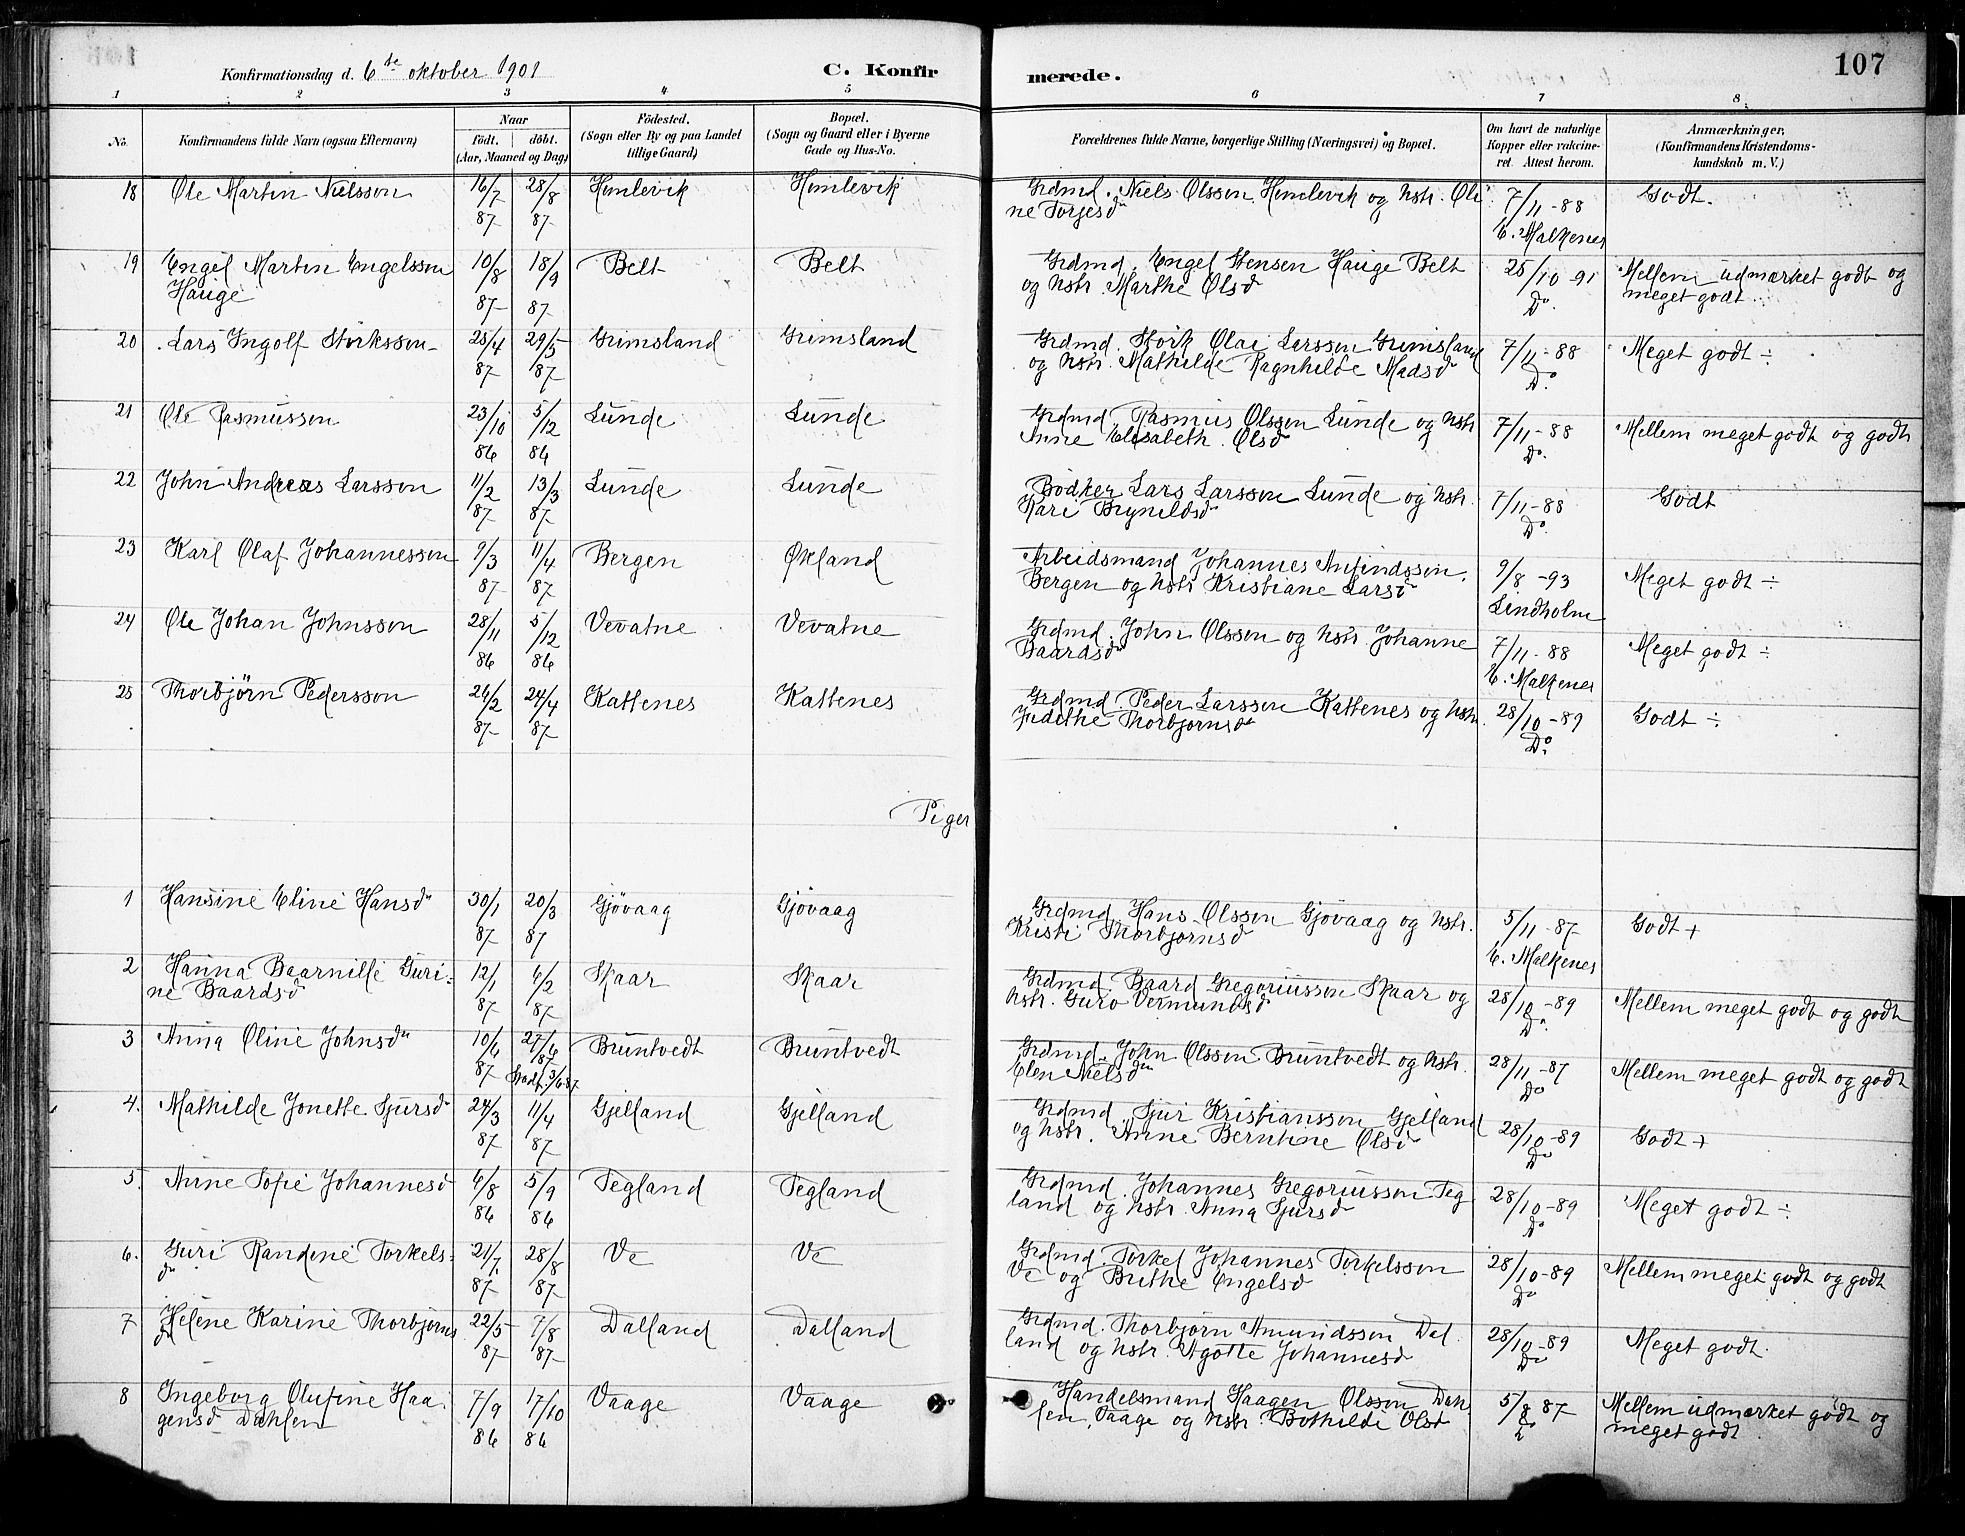 Konfirmationsdag d. 6te oktober 1901 C. Konfirmerede. 107
1 2 3 4 5 6 7 8
No. Konfirmandens fulde Navn (ogsaa Efternavn) Naar født. døbt. (Aar, Maaned og Dag) Fødested. (Sogn eller By og paa Landet tillige Gaard) Bopæl. (Sogn og Gaard eller i Byerne Gade og Hus-No. Forældrenes fulde Navne, borgerlige Stilling (Næringsvei) og Bopæl. Om havt de naturlige Kopper eller vakcineret. Attest herom. Anmærkninger, (Konfirmandens Kristendomskundskab m. V.)
18 Ole Martin Nielsson 16/7 87 28/8 87 Himlevik Himlevik Grdmd. Niels Olsson Himlevik og hstr. Oline Torjesd 7/11-88 C. Malkenes Godt.
19 Engel Martin Engelsson Hauge 10/8 87 18/9 87 Belt Belt Grdmd. Engel Stensen Hauge Belt og hstr. Marthe Olsd 25/10-91 Do. Mellem udmærket godt og meget godt.
20 Lars Ingolf Størksson 25/4 87 29/5 87 Grimsland Grimsland Grdmd. Størk Olai Larsson Grimsland og hstr. Mathilde Ragnhilde Madsd 7/11-88 Do. Meget godt ÷
21 Ole Rasmusson 23/10 86 5/12 86 Lunde Lunde Grdmd. Rasmus Olsson Lunde og hstr Anne Elisabeth Olsd 7/11-88 Do. Mellem meget godt og godt
22 John Andreas Larsson 11/2 87 13/3 87 Lunde Lunde Bødker Lars Larsson Lunde og hstr. Kari Brynildsd 7/11-88 Do. Godt
23 Karl Olaf Johannesson 9/3 87 11/4 87 Bergen Økland Arbeidsmand Johannes Anfindsson, Bergen og hstr Kristiane Larsd 9/8-93 Lindholm Meget godt ÷
24 Ole Johan Johnsson 28/11 86 5/12 86 Vevatne Vevatne Grdmd. John Olsson og hstr Johanne Baardsd 7/11-88 C. Malkenes Meget godt ÷
25 Thorbjörn Pedersson 26/2 87 24/4 87 Kattenes Kattenes Grdmd. Peder Larsson Kattenes og hstr. Judithe Thorbjørnsd 28/10-89 Do. Godt ÷
Piger
1 Hansine Eline Hansd 30/1 87 20/3 87 Gjøvaag Gjøvaag Grdmd. Hans Olsson Gjøvaag og hstr. Kristi Thorbjørnsd 5/11-87 C. Malkenes Godt +
2 Hanna Baarnille Gurine Baardsd 12/1 87 6/2 87 Skaar Skaar Grdmd. Baard Gregoriusson Skaar og hstr. Guro Vermundsd 28/10-89 Do. Mellem meget godt og godt
3 Anna Oline Johnsd 10/6 87 27/6 87 Stadf. 3/6 87 Bruntvedt Bruntvedt Grdmd. John Olsson Bruntvedt og hstr. Elen Nielsd 28/11-87 Do Mellem meget godt og godt
4. Mathilde Jonette Sjursd 24/3 87 11/4 87 Gjelland Gjelland Grdmd. Sjur Kristiansson Gjelland og hstr. Anne Berntine Olsd 28/10-89 Do Godt +
5. Anne Sofie Johannesd 6/8 86 5/9 86 Tegland Tegland Grdmd. Johannes Gregoriusson Tegland og hstr. Anna Sjursd 28/10-89 Do Meget godt ÷
6. Guri Randine Torkelsd 21/7 87 28/8 87 Ve Ve Grdmd. Torkel Johannes Torkelsson Ve og Brithe Engelsd 28/10-89 Do Mellem meget godt og godt
7 Helene Karine Thorbjørnsd 22/5 87 7/8 87 Dalland Dalland Grdmd. Thorbjørn Amundsson Dalland og hstr. Agotte Johannesd 28/10-89 Do Meget godt.
8 Ingeborg Olufine Haagensd Dahlen 7/9 86 17/10 86 Vaage Vaage Handelsmand Haagen Olsson Dahlen, Vaage og hstr. Bothilde Olsd 5/8 87 Mellem udmærket godt og meget godt